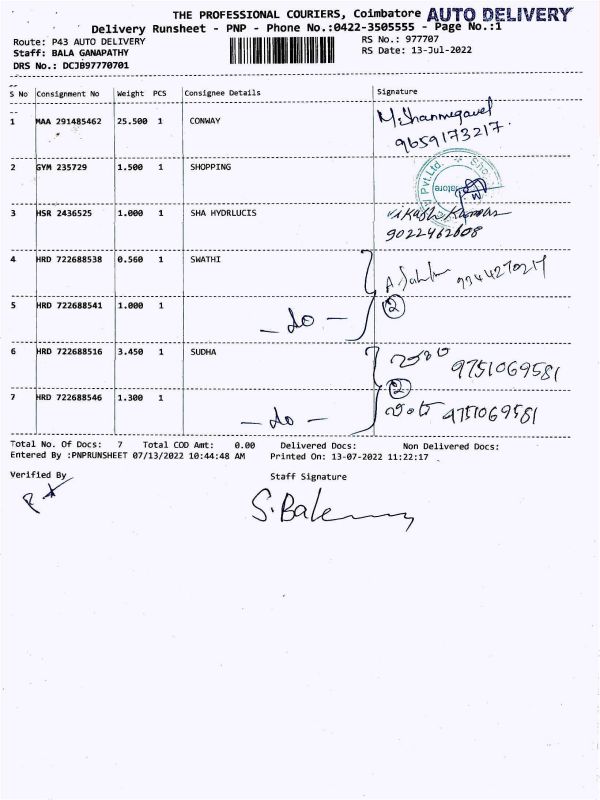 THE PROFESSIONAL COURIERS, Coimbatore AUTO DELIVERY
Delivery Runsheet - PNP - Phone No.:0422-3505555 - Page No.:1
Route: P43 AUTO DELIVERY RS No.: 977707
Staff: BALA GANAPATHY RS Date: 13-Jul-2022
DRS No.: DCJB97770701
S No Consignment No Weight PCS Consignee Details Signature
1 MAA 291485462 25.500 1 CONWAY M. Shanmugavel
9659173217.
2 GYM 235729 1.500 1 SHOPPING
Pvt.Ltd. Sho
3 HSR 2436525 1.000 1 SHA HYDRLUCIS Vikash Kumar
9022462608
4 HRD 722688538 0.560 1 SWATHI 9344270217
5 HRD 722688541 1.000 1 - do - 2
6 HRD 722688516 3.450 1 SUDHA 9751069581
2
7 HRD 722688546 1.300 1 - do - 9751069581
Total No. Of Docs: 7 Total COD Amt: 0.00 Delivered Docs: Non Delivered Docs:
Entered By :PNPRUNSHEET 07/13/2022 10:44:48 AM Printed On: 13-07-2022 11:22:17
Verified By Staff Signature